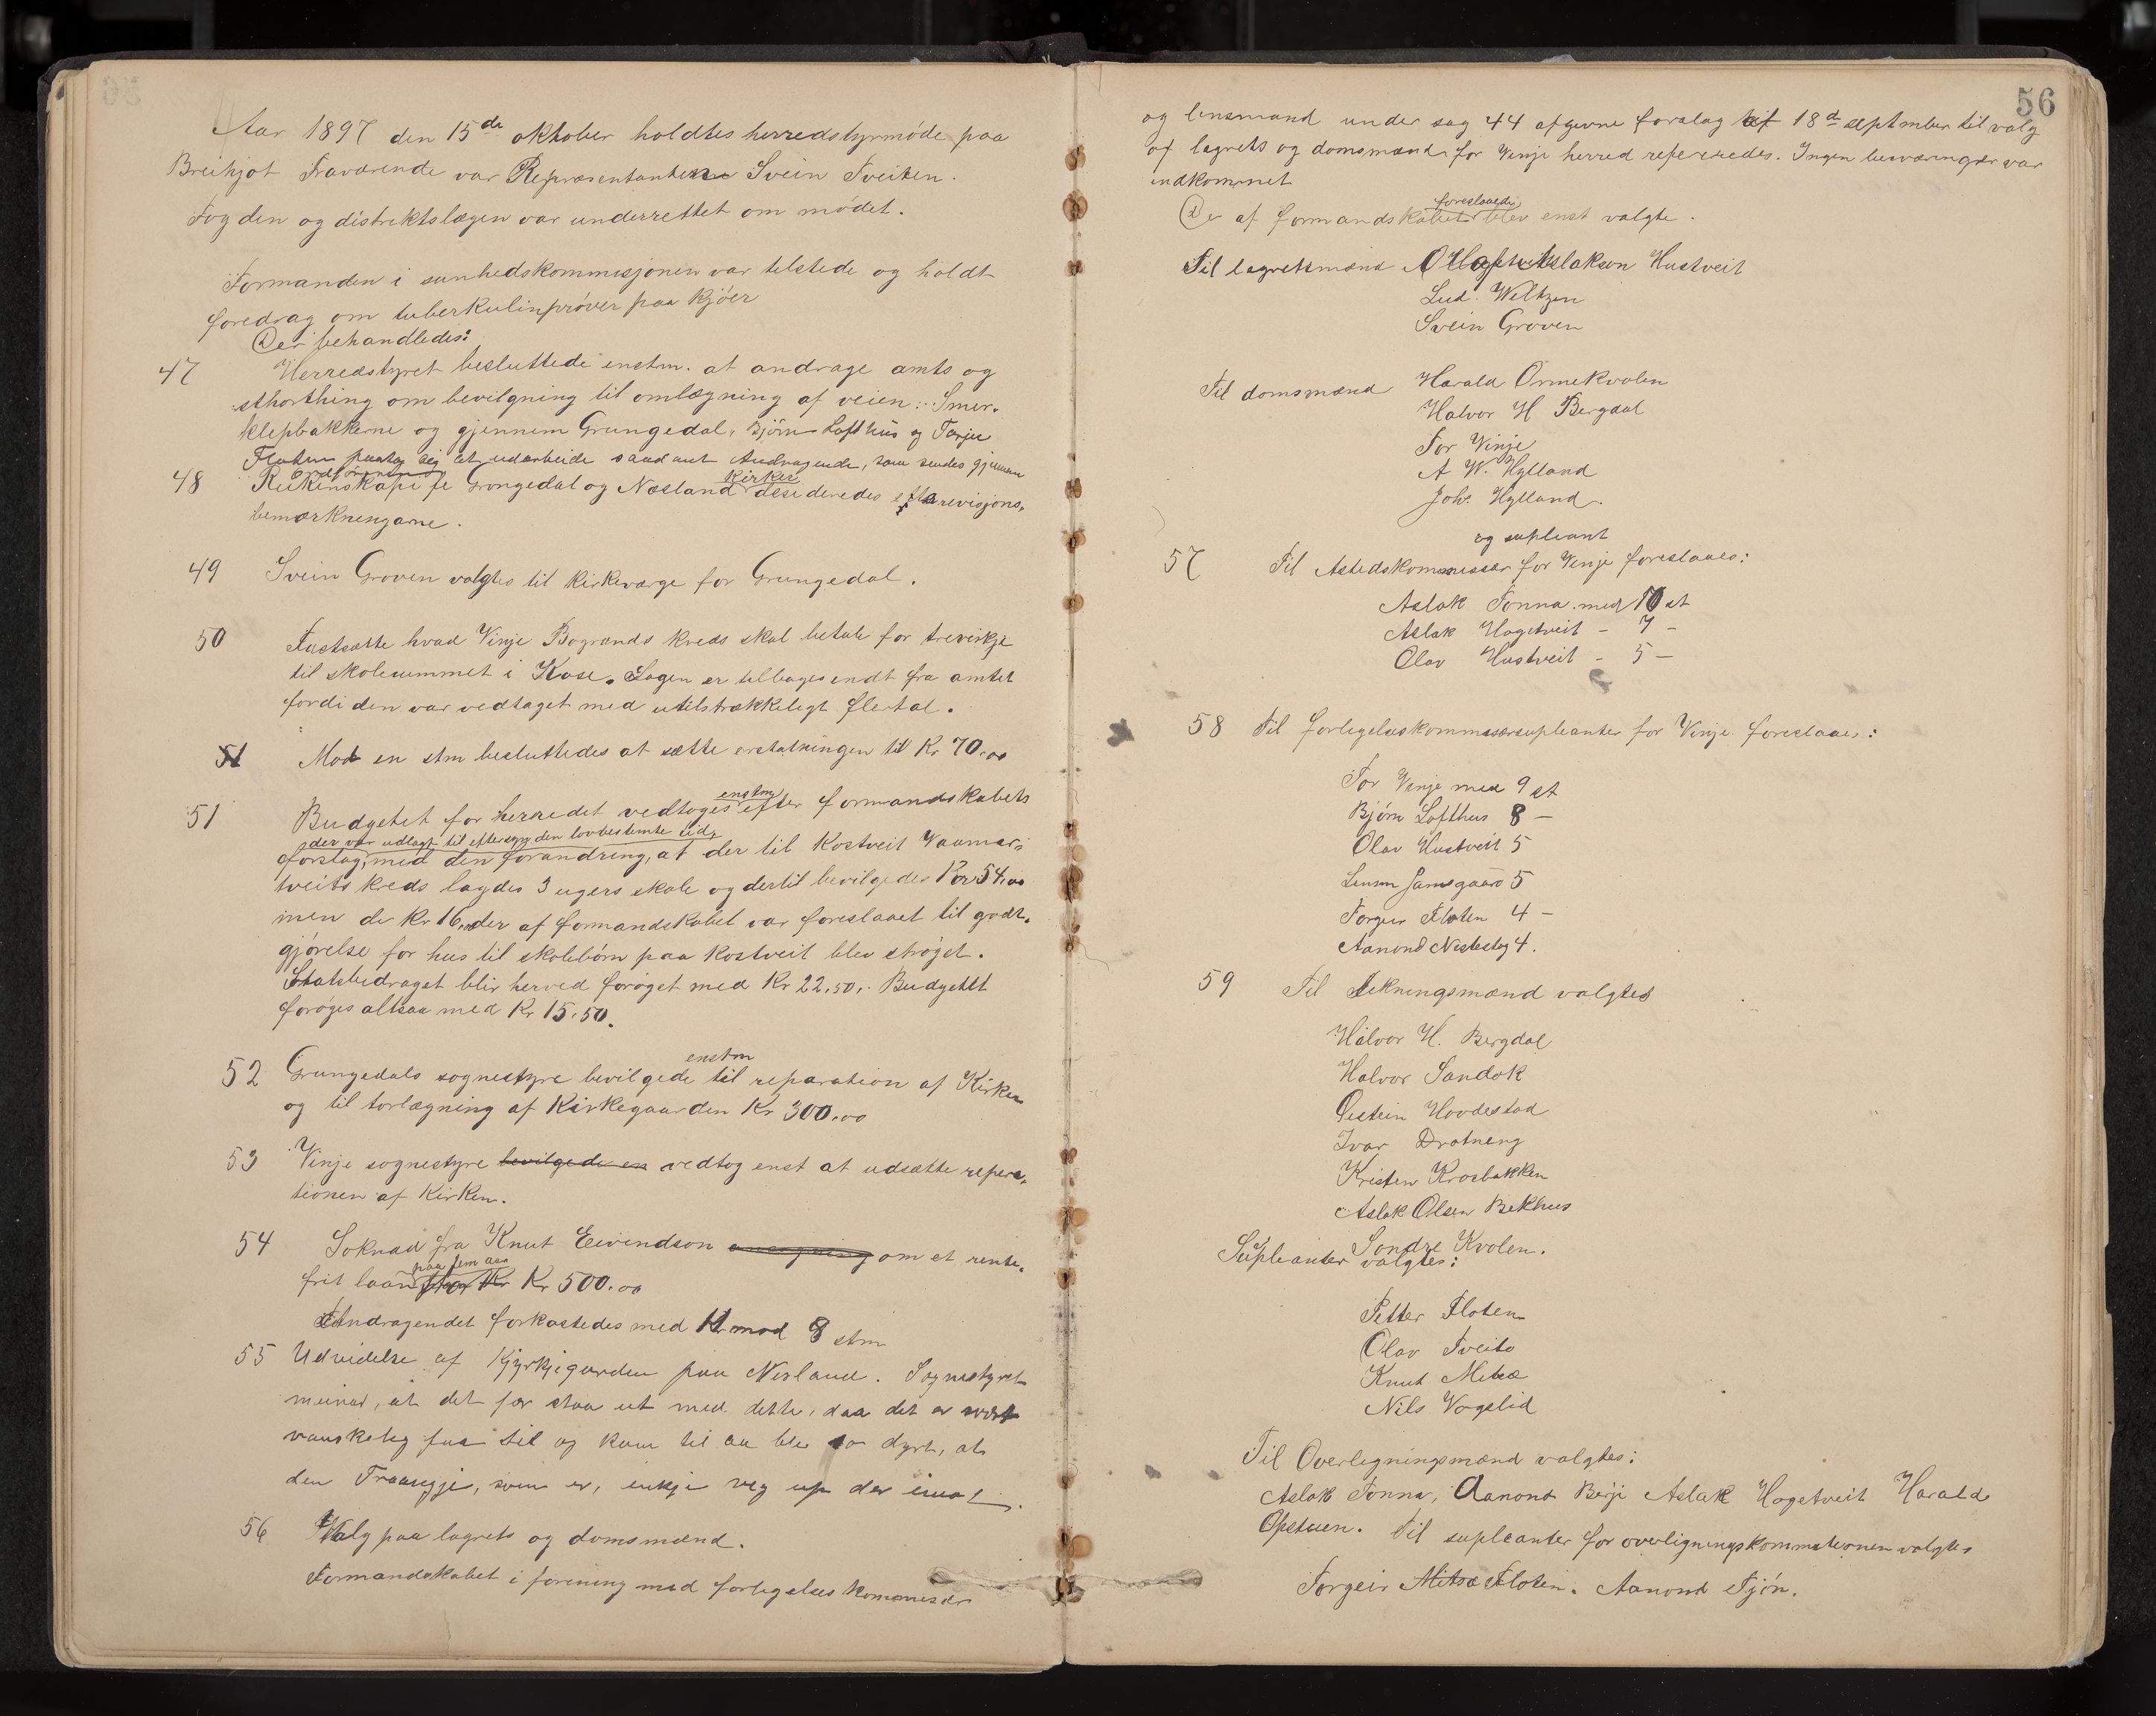 Aar 1897 den 15de oktober holdtes herredstyrmøde paa
Breihjot Fraværende var Repræsentanten Svein Tveiten.
Fogden og distriktslægen var underrettet om mødet.
Formanden i sunhedskommisjonen var tilstede og holdt
foredrag om tuberkulinprøver paa kjøer
Der behandledes:
47 Herredstyret besluttede enstm. at andrage amts og
sthorthing om bevilgning til omlægning af veien: Smør-
klepbakkerne og gjennem Grungedal. Bjørn Lofthus og Torju
Floten paatog sig at udarbeide saadant Andragende, som sendes gjennem
ordføreren
48 Reikenskape fe Grungedal og Næsland kirker desideredes efter revisjons-
bemærkningarne.
49 Svein Groven valgtes til kirkeværge for Grungedal.
50 Fastsætte hvad Vinje Bøgrænds kreds skal betale for trevirkje
til skolerummet i Kose. Sagen er tilbagesendt fra amtet
fordi den var vedtaget med utilstrækkeligt flertal.
51 Mod en stm besluttedes at sætte erstatningen til Kr 70.00
51 Budgetet for herredet vedtoges enstm efter formandskabets
der var udlagt til eftersyn den lovbestemte tid,
forslag, med den forandring, at der til Kostveit Vaamar-
tveits kreds lagdes 3 ugers skole og dertil bevilgedes Kr 54.00
men de Kr 16.00 der af formandskabet var foreslaaet til godt-
gjørelse for hus til skolebørn paa Kostveit blev strøget.
Statsbidraget blir herved forøget med Kr 22,50,. Budgettet
forøges altsaa med Kr 15.50.
52 Grungedals sognestyre bevilgede enstm til reparation af Kirken
og til torlægning af Kirkegaarden Kr 300.00
53 Vinje sognestyre bevilgede en vedtog enst at udsætte repera-
tionen af Kirken.
54 Soknad fra Knut Eivindson om et rente-
frit laan paa fem aar stor Kr Kr 500.00
Andragendet forkastedes med 11 mod 8 stm
55 Udvidelse af Kyrkjegarden paa Nesland. Sognestyret
meinar, at det fær staa ut med dette, daa det er svært
vanskeleg faa til og kom til aa ble so dyrt, at
den Traangje, som er, inkje veg up der imot.
56 Valg paa lagrets og domsmænd.
Formandskabet i forening med forligelseskommissær
56
og lensmand under sag 44 afgivne forslag af 18d september til valg
af lagrets og domsmænd for Vinje herred refereredes. Ingen besværinger var
indkommet
De af formandskabet foreslaaede blev enst valgte.
Til lagretsmænd Olaf Aslakson Hustveit
Lud. Weltzin
Svein Groven
Til domsmænd Harald Ormekvolen
Halvor H Bergdal
Tor Vinje
A W. Hylland
Joh. Hylland.
og supleant
57 Til Astedskommissær for Vinje foreslaaes:
Aslak Tonna med 10 st
Aslak Hagetveit - 7 -
Olav Hustveit - 5 -
58 Til forligelseskommissærsupleanter for Vinje foreslaaes:
Tor Vinje med 9 st
Bjørn Lofthus 8 -
Olav Hustveit 5
Lensm Jamsgaard 5
Torgeir Floten 4 -
Aanond Nistestog 4.
59 Til Likningsmænd valgtes
Halvor H. Bergdal
Halvor Sandok
Øistein Hovdestad
Ivar Drotning
Kristen Krosbakken
Aslak Olsen Bekhus
Sondre Kvolen.
Supleanter valgtes:
Petter Floten
Olav Tveito
Knut Mitbø
Nils Vågslid
Til Overlegningsmænd valgtes:
Aslak Tonna, Aanond Berje Aslak Hagetveit Harald
Opstuen. Til supleanter for overligningskommisionen valgtes
Torgeir Floten. Aanond Tjøn.